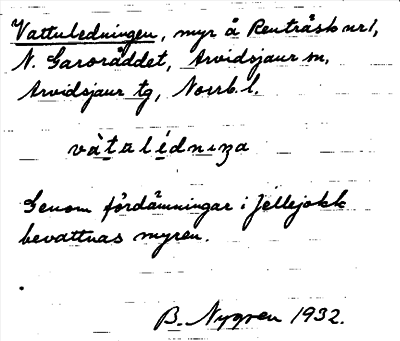 Vattuledningen, myr å Renträsk nr 1,
N. Garoråddet, Arvidsjaur sn,
Arvidsjaur tg, Norrb. l.
vàtalédnıŋa
Genom fördämningar i Jellejokk
bevattnas myren.
B. Nygren 1932.